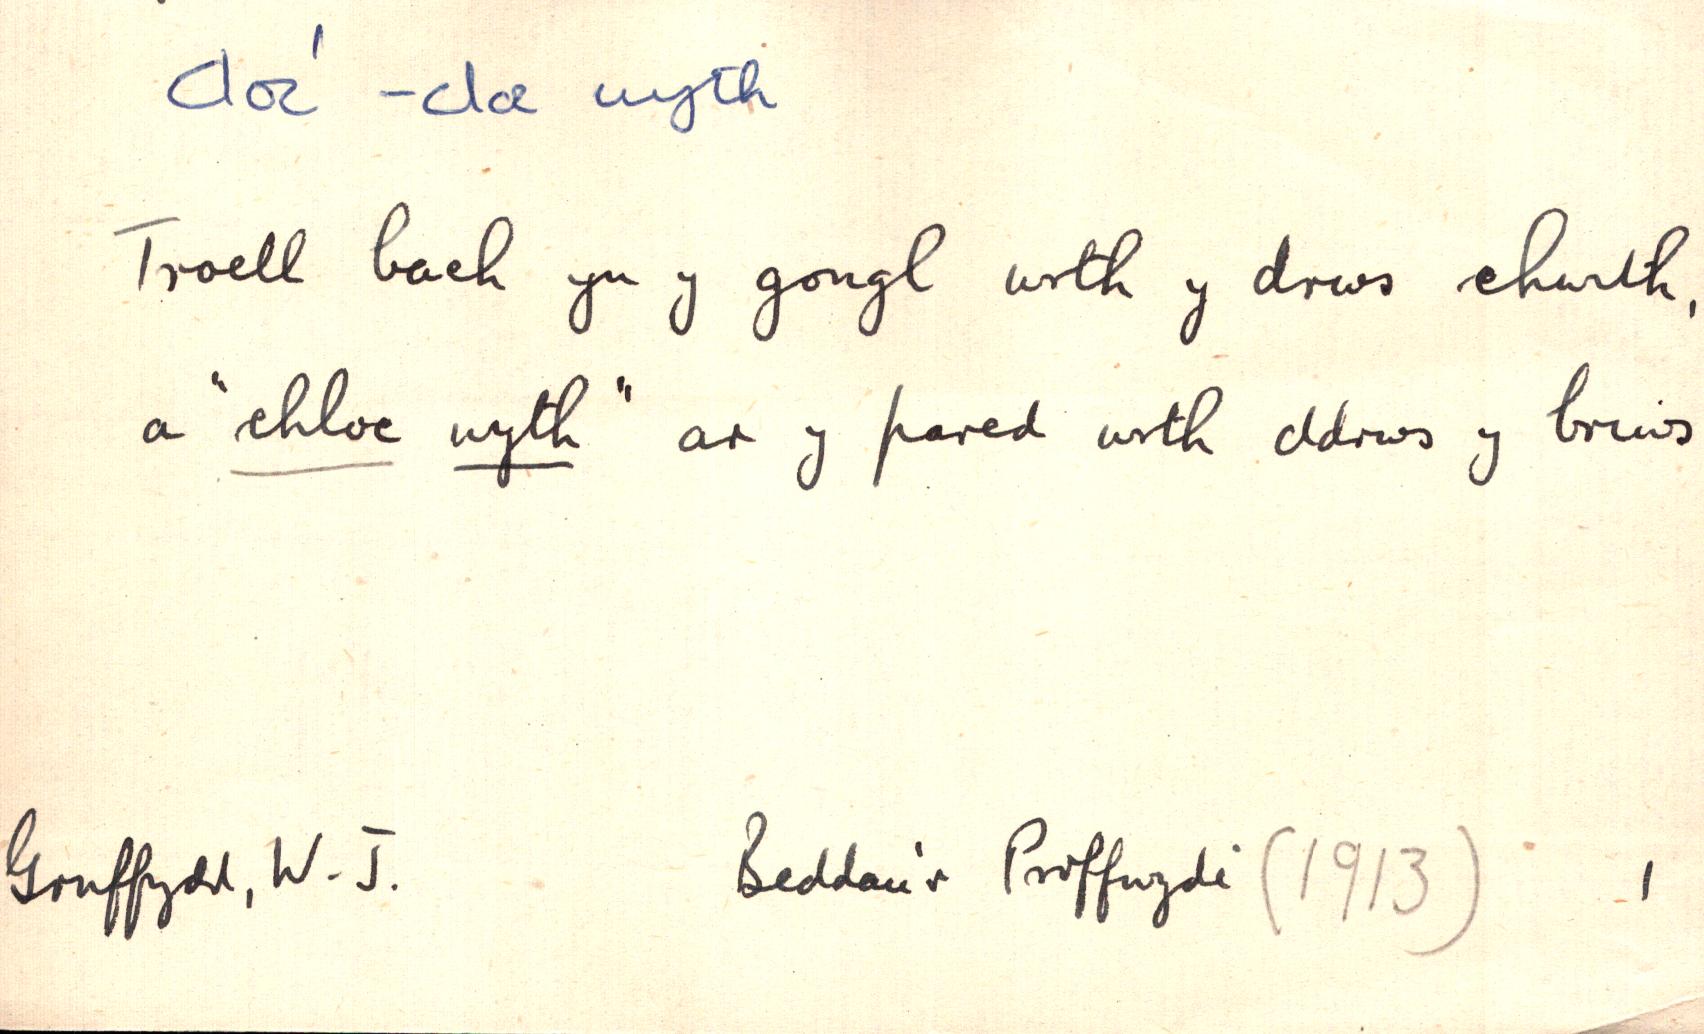 cloc¹ - cloc wyth
Troell bach yn y gongl wrth y drws chwith,
a "chloc wyth" ar y pared wrth ddrws y briws
Gruffydd, W. J. Beddau'r Proffwydi (1913) 1